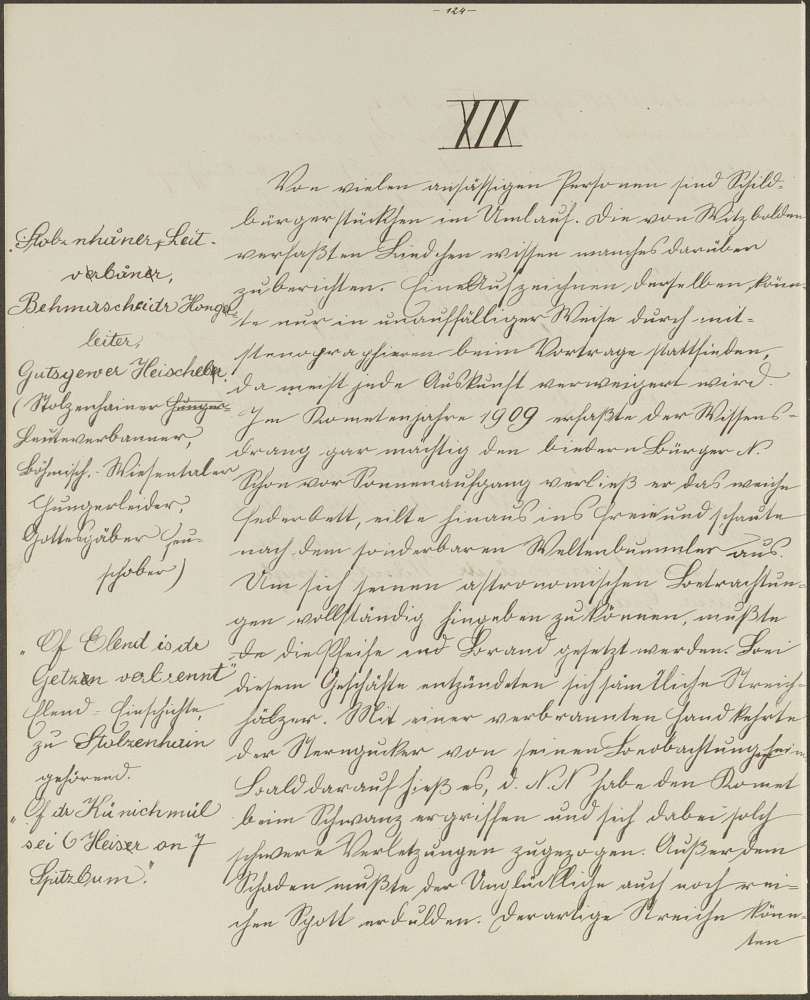 - 124 -
XIX
Von vielen ansässigen Personen sind Schild-
bürgerstückchen im Umlauf. Die von Witzbolden
verfaßten Liedchen wissen manches darüber
zu berichten. Eine Aufzeichnen derselben könn-
te nur in unauffälliger Weise durch mit-
stenographieren beim Vortrage stattfinden,
da meist jede Auskunft verweigert wird.
Im Kometenjahre 1909 erfaßte der Wissens-
drang gar mächtig den biedern Bürger N.
Schon vor Sonnenaufgang verließ er das weiche
Federbett, eilte hinaus ins Freie und schaute
nach dem sonderbaren Weltenbummler aus.
Um sich seinen astronomischen Betrachtun-
gen vollständig hingeben zu können, mußte
die Pfeife in Brand gesetzt werden. Bei
diesem Geschäfte entzündeten sich sämtliche Streich-
hölzer. Mit einer verbrannten Hand kehrte
der Sterngucker von seinen Beobachtungen heim
Bald darauf hieß es, d. N. N habe den Komet
beim Schwanz ergriffen und sich dabei solch
schwere Verletzungen zugezogen. Außer dem
Schaden mußte der Unglückliche auch noch rei-
chen Spott erdulden. Derartige Streiche könn-
ten
"Stobenhåner, Leit-
verbåner,
Behmischeidr Honger-
leiter,
Gutsgewer Heischeber.
(Stolzenhainer Hunger-
Leuteverbanner,
Böhmisch.-Wiesentaler
Hungerleider,
Gottesgäber Heu-
schober)
"Of Elend is dr
Getzen verbrennt"
Elend - Einschichte,
zu Stolzenhain
gehörend.
"Of dr Künichmül
sei 6 Heiser on 7
Spitzbum."